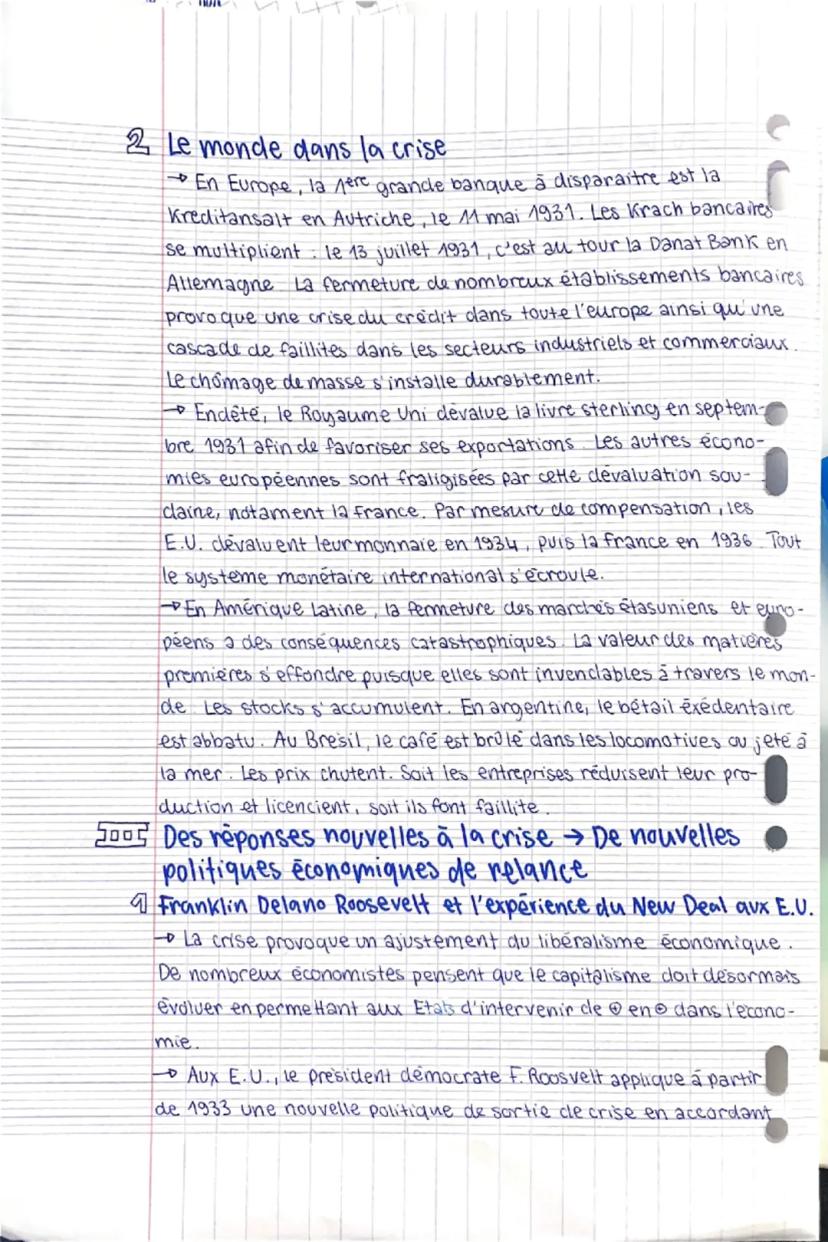 2 Le monde dans la crise
→ En Europe, la 1ère grande banque à disparaitre est la
Kreditansalt en Autriche, le 11 mai 1931. Les Krach bancaires
se multiplient : le 13 juillet 1931, c'est au tour la Danat Bank en
Allemagne. La fermeture de nombreux établissements bancaires
provoque une crise du crédit dans toute l'europe ainsi qu'une
cascade de faillites dans les secteurs industriels et commerciaux.
Le chômage de masse s'installe durablement.
→ Endêté, le Royaume Uni dévalue la livre sterling en septem-
bre 1931 afin de favoriser ses exportations. Les autres écono-
mies européennes sont fraligisées par cette dévaluation sou-
daine, notament la France. Par mesure de compensation, les
E.U. dévaluent leur monnaie en 1934, puis la France en 1936. Tout
le système monétaire international s'écroule.
→ En Amérique Latine, la fermeture des marchés étasuniens et euro-
péens a des conséquences catastrophiques. La valeur des matières
premières s'effondre puisque elles sont invendables à travers le mon-
de. Les stocks s'accumulent. En argentine, le bétail éxédentaire
est abbatu. Au Brésil, le café est brûlé dans les locomotives ou jeté à
la mer. Les prix chutent. Soit les entreprises réduisent leur pro-
duction et licencient, soit ils font faillite.
III Des réponses nouvelles à la crise → De nouvelles
politiques économiques de relance
1 Franklin Delano Roosevelt et l'expérience du New Deal aux E.U.
→ La crise provoque un ajustement du libéralisme économique.
De nombreux économistes pensent que le capitalisme doit désormais
évoluer en permettant aux Etats d'intervenir de ⊕ en ⊕ dans l'écono-
mie.
→ Aux E.U., le président démocrate F. Roosvelt applique à partir
de 1933 une nouvelle politique de sortie de crise en accordant